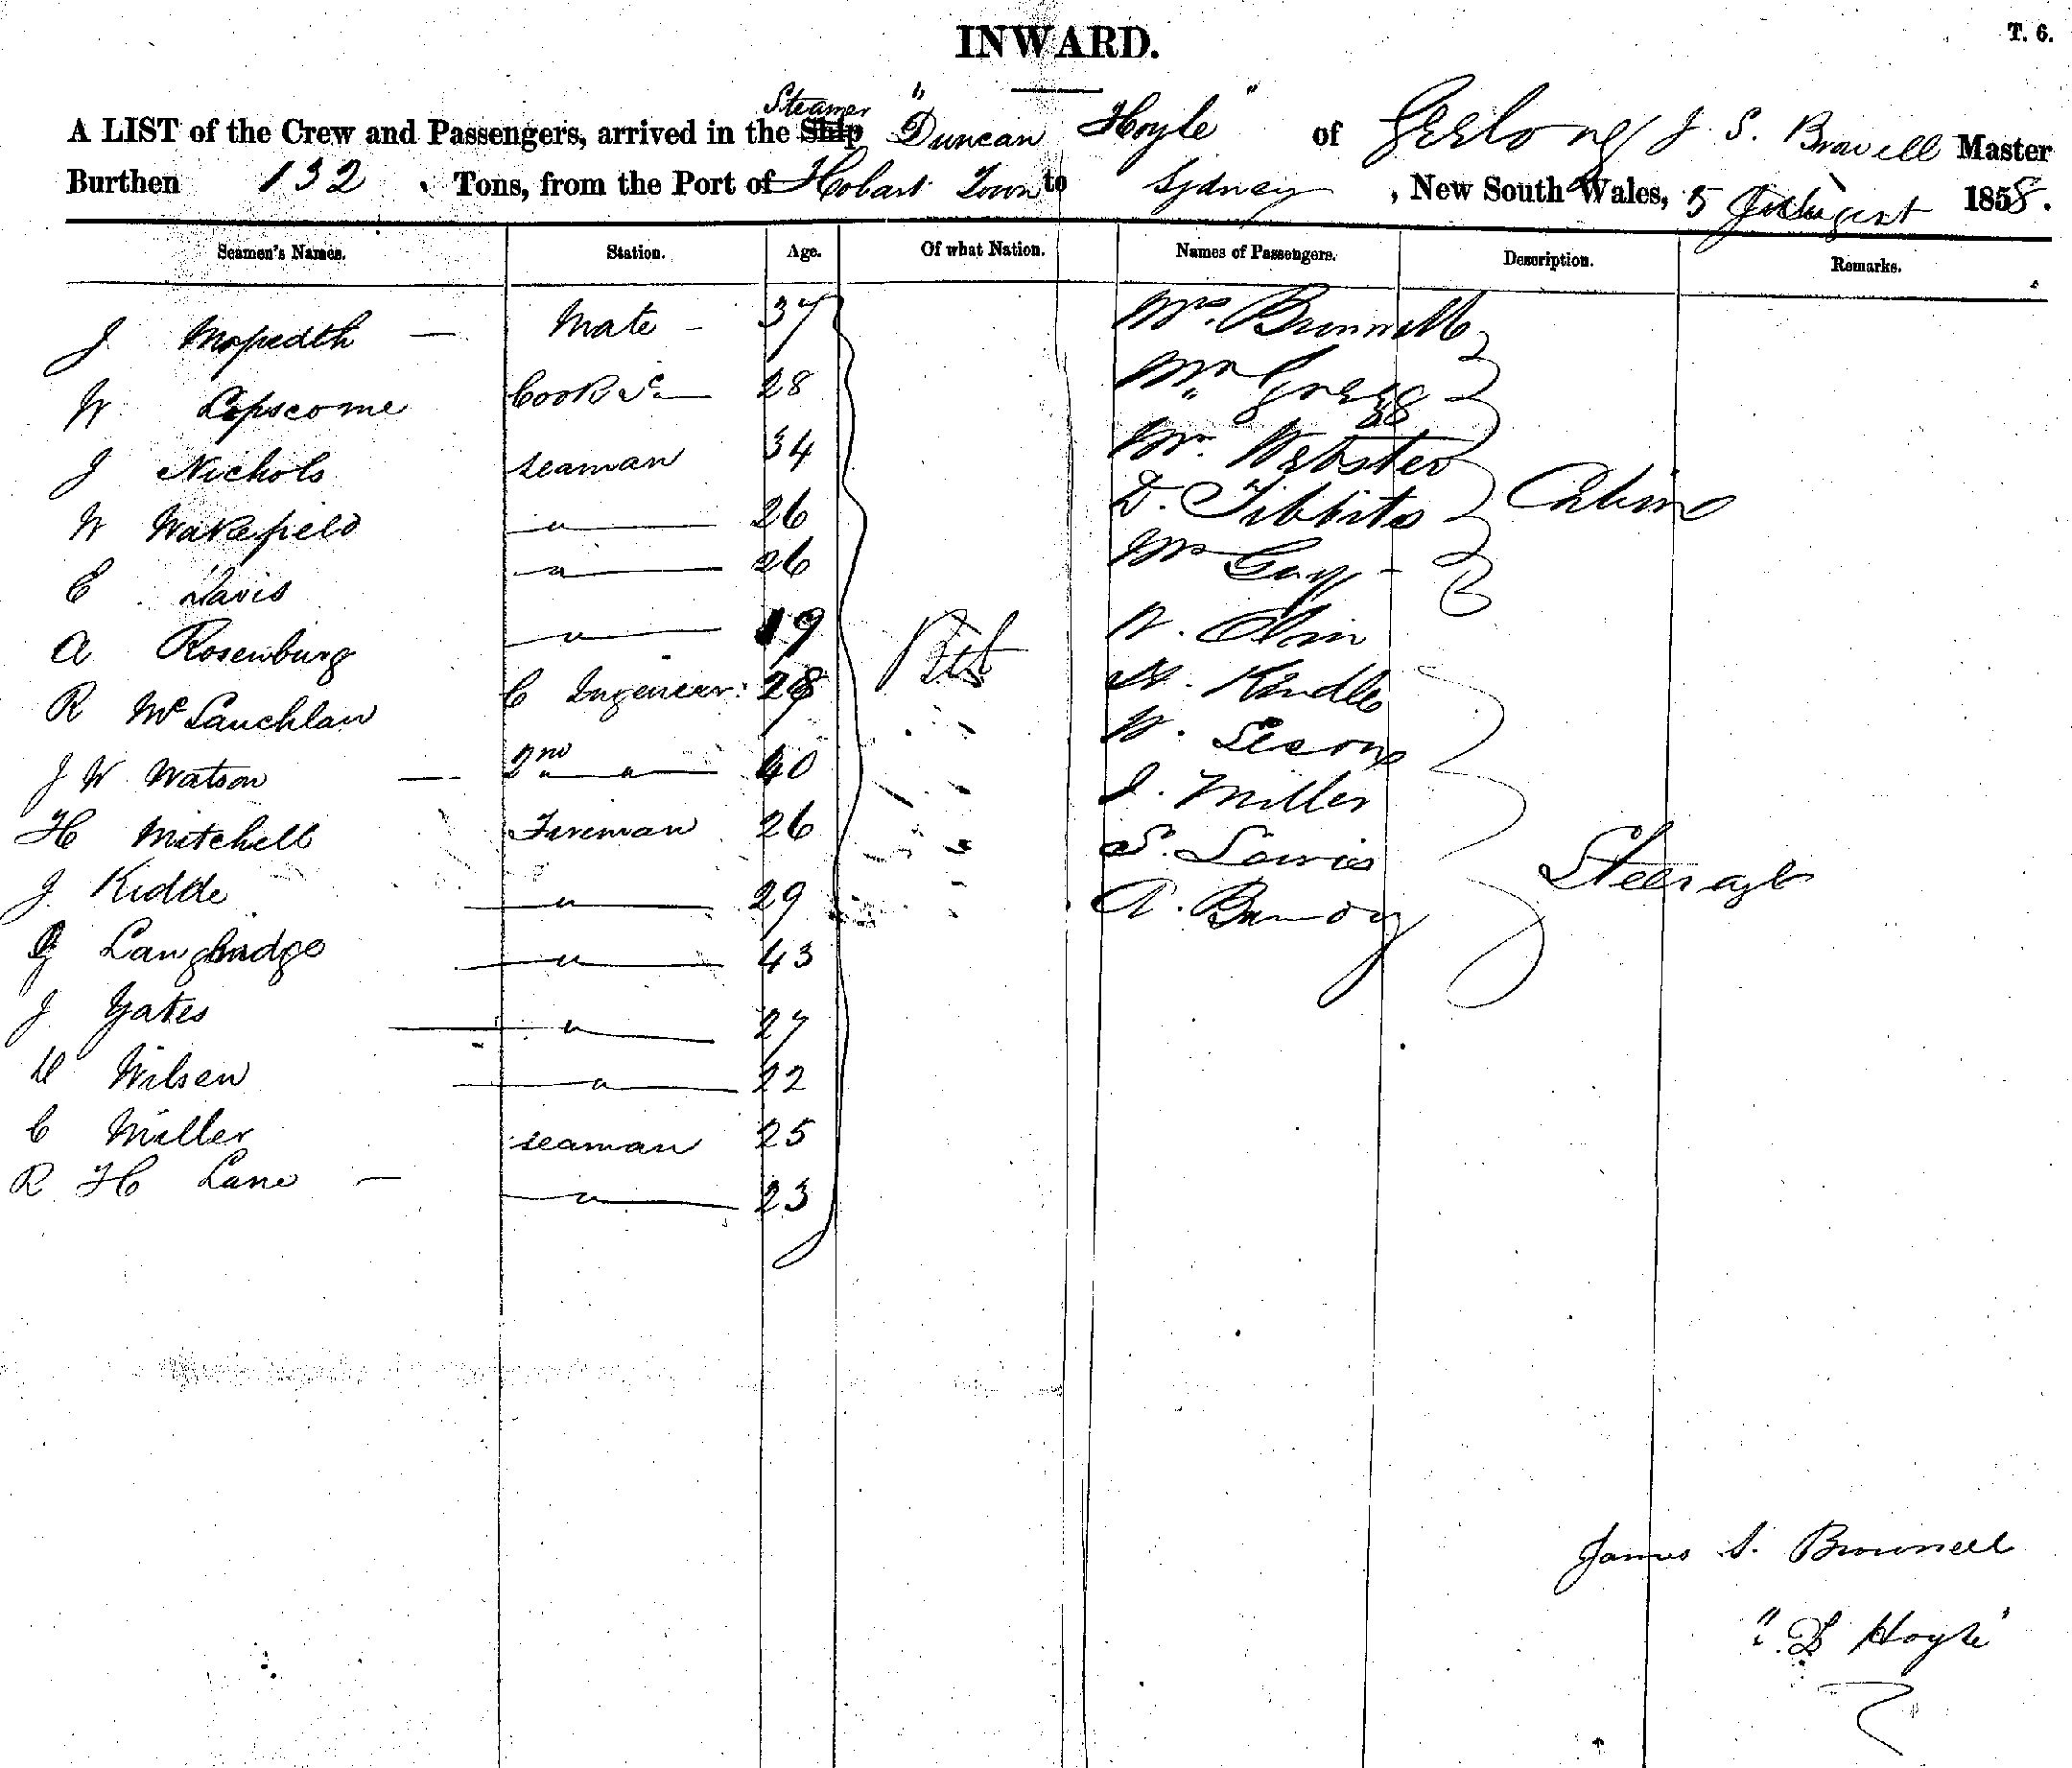 INWARD.
T. 6.
Steamer
A LIST of the Crew and Passengers, arrived in the Ship "Duncan Hoyle" of Geelong J. S. Brownell Master
Burthen 132 Tons, from the Port of Hobart Town to Sydney, New South Wales, 5 August 1858.
Seamen's Names. Station. Age. Of what Nation. Names of Passengers. Description. Remarks.
J — Mate - 37 Mrs. Brownell
W Lipscome Cook &c 28 Mr Gregg
J Nichols seaman 34 Mr. Webster
W Wakefield " 26 D. Tibbits Cabin
E Davis " 26 Mr Guy -
A Rosenburg " 19 Brit W.
R McLauchlan C Ingeneer 28 Kindle
J W Watson — 2nd " 40 W.
H Mitchell Fireman 26 J. Miller
J Kidde " 29 S. Lewis Steerage
G Langbridge " 43 A.
J Yates " 27
Wilsen " 22
C Miller seaman 25
R H Lane — " 23
James S. Brownell
"D Hoyle"